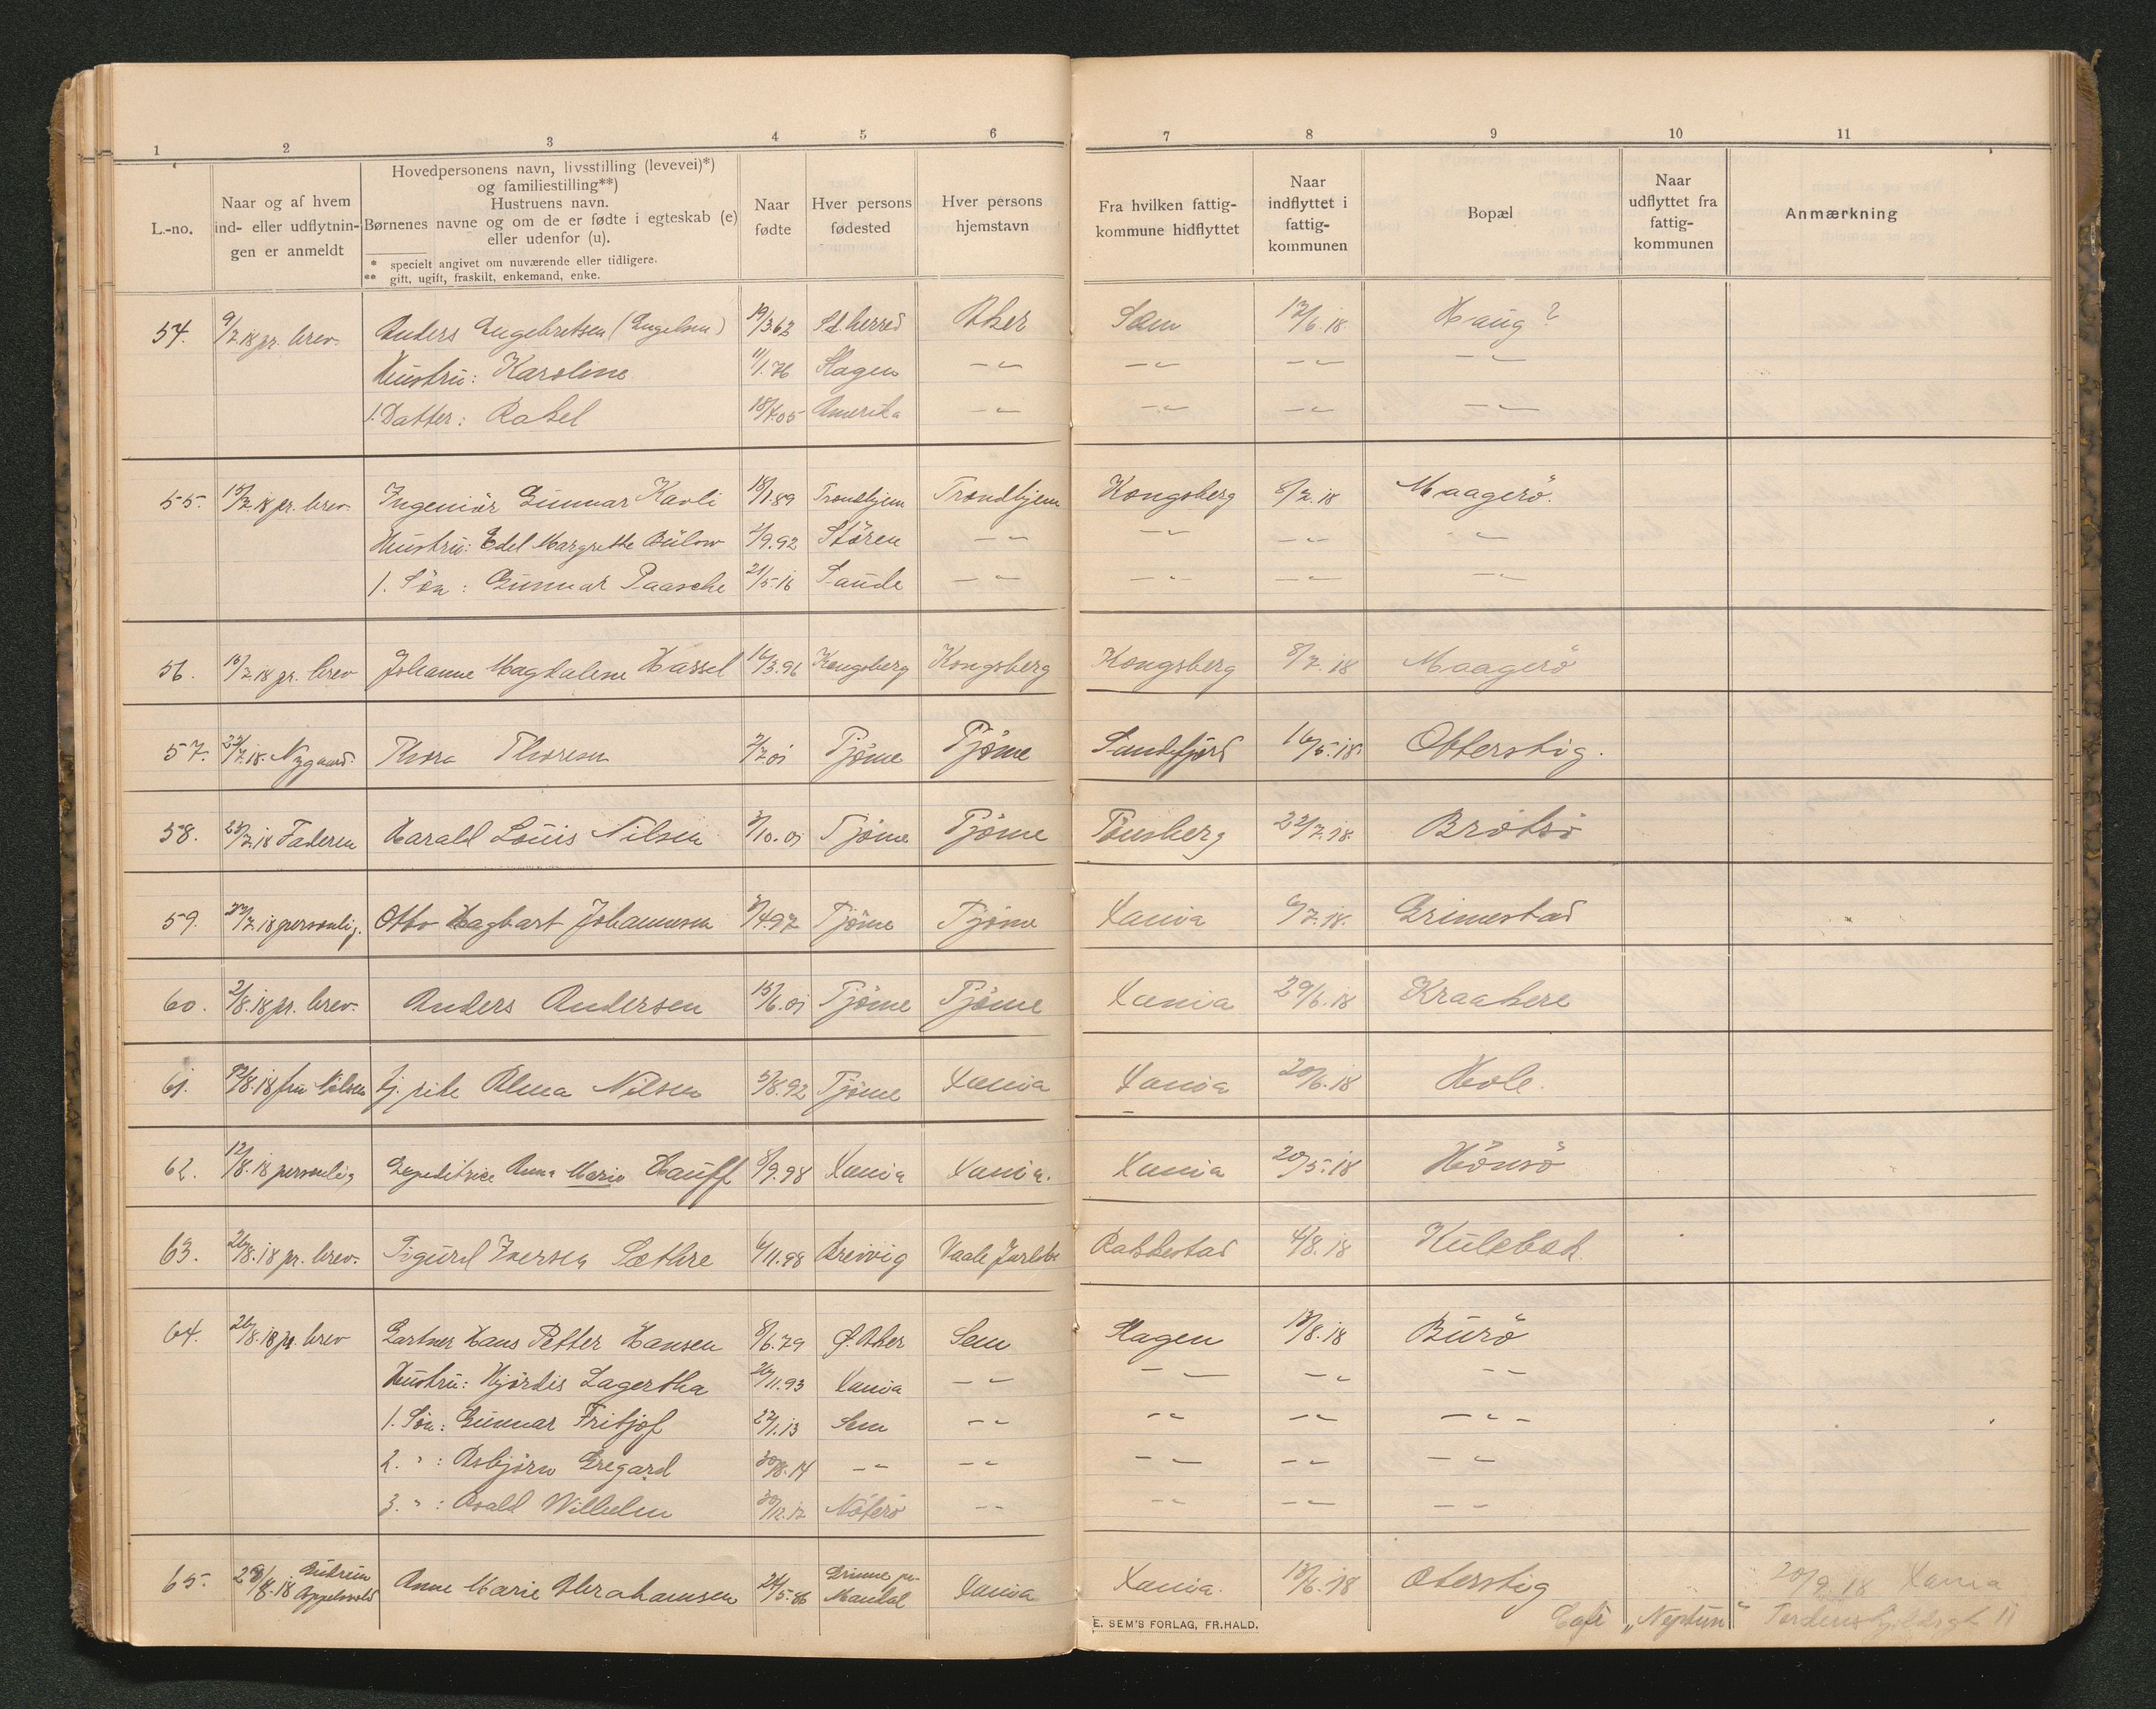 1 2 3 4 5 6 7 8 9 10 11
L.-no.
Naar og af hvem
ind- eller udflytnin-
gen er anmeldt
Hovedpersonens navn, livsstilling (levevei)*)
og familiestilling**)
Hustruens navn.
Børnenes navne og om de er fødte i egteskab (e)
eller udenfor (u).
* specielt angivet om nuværende eller tidligere.
** gift, ugift, fraskilt, enkemand, enke.
Naar
fødte
Hver persons
fødested
Hver persons
hjemstavn
Fra hvilken fattig-
kommune hidflyttet
Naar
indflyttet i
fattig-
kommunen
Bopæl
Naar
udflyttet fra
fattig-
kommunen
Anmærkning
54. 9/7.18 pr. brev. Anders Engebretsen (Engelsen) 19/3 63 Aker Sem 13/6.18 Haug?
Hustru: Karoline 11/1.76 Slagen -"- -"- -"- -"-
1. Datter: Rakel 18/7.05 Amerika -"- -"- -"- -"-
55. 15/7.18 pr. brev. Ingeniör Gunnar Kavli 18/1.89 Trondhjem Trondhjem Kongsberg 8/7.18 Maagerö.
Hustru: Edel Margrethe Bülow 2/9.92 Stören -"- -"- -"- -"-
1. Sön: Gunnar Paasche 21/5.16 Sande -"- -"- -"- -"-
56. 15/7.18 pr. brev Johanne Magdalene Hassel 16/3.96 Kongsberg Kongsberg Kongsberg 8/7.18 Maagerö
57. 22/7.18. Nygaard. Thora Thoresen 2/7.01 Tjöme Tjöme Sandefjord 16/5.18. Otterstig.
58. 23/7.18 Faderen Harald Louis Nilsen 3/10.01 Tjöme Tjöme Tönsberg 22/7.18. Brötsö
59. 27/7.18 personlig. Otto Hagbart Johannesen 3/4.97 Tjöme Tjöme Xania 6/7.18. Grimestad
60. 2/8.18 pr. brev. Anders Andersen 15/6.01 Tjöme Tjöme Xania 29/6.18 Kraakere
61. 12/8.18 fru Nilsen tj. pike Alma Nilsen 5/8.92 Tjöme Xania Xania 20/6.18 Hole.
62. 12/8.18 personlig Expeditrice Anna Marie Hauff 8/9.98 Xania Xania. Xania 20/5.18 Hönsö
63. 26/8.18 pr. brev. Sigurd Iversen Sæthre 6/11.98 Vaale Jarlsb. Rakkestad 4/8.18 Kulebæk.
64. 26/8.18 pr. brev Gartner Hans Petter Hansen 8/6.79 Ø. Aker Sem Slagen 13/8.18 Burö
Hustru: Hjördis Lagertha 26/11.93 Xania -"- -"- -"- -"-
1. Sön: Gunnar Fritjof 27/1.13 Sem -"- -"- -"- -"-
2. " : Asbjörn Gregard 30/8.14 -"- -"- -"- -"- -"-
3. " : Asvald Wilhelm 30/12.17 Nöterö -"- -"- -"- -"-
65. 28/8.18 Gudrun
Anne Marie Abrahamsen 24/5.86 Mandal Xania Xania. 13/6.18 Oterstig 20/9.18 Xania
Café "Neptun" Tordenskjoldsgt 11
E. SEM'S FORLAG, FR.HALD.